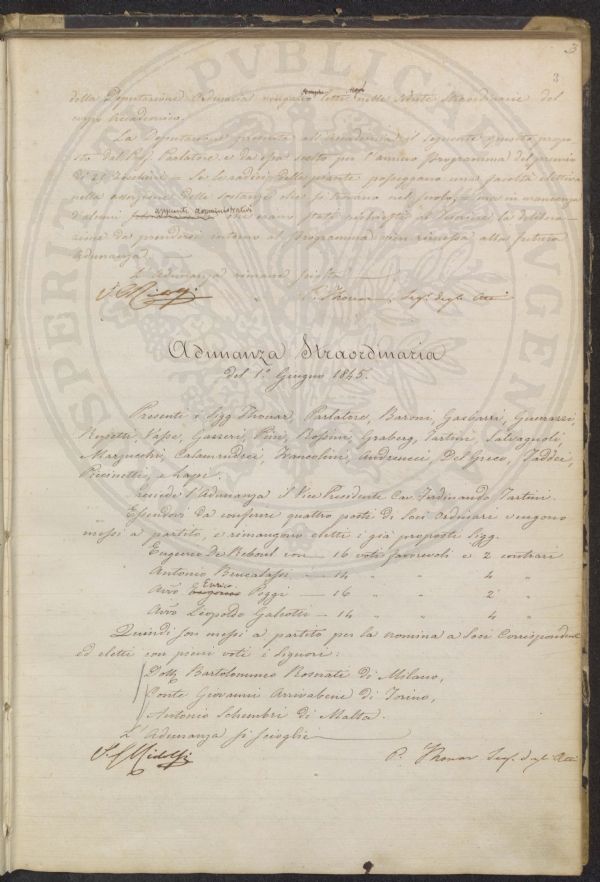 3
3
della Deputazione Ordinaria vengano sempre lette nelle sedute straordinarie del
corpo accademico.
La Deputazione presenta all'accademia il seguente quesito propo
sto dal Prof. Parlatore e da essa scelto per l'annuo programma del premio
di 25 Zecchini — Se le radici delle piante posseggano una facoltà elettiva
nella assorzione delle sostanze che si trovano nel
d'alcuni appunti amministrativi che erano stati richiesti al la delibera
zione da prendersi intorno al programma vien rimessa alla futura
Adunanza.
L'Adunanza rimane sciolta
P. Thouar, Seg. degli Atti
Adunanza Straordinaria
del 1.° Giugno 1845.
Presenti i Sigg. Thouar, Parlatore, Baroni, Gasbarri, Guerrazzi,
Repetti, Passe, Gazzeri, Piri, Rossini, Graberg, Tartini, Salvagnoli,
Marzucchi, Calamandrei, Franceschini, Andreucci, Del Greco, Taddei,
Pecinetti, e Lapi.
Presiede l'Adunanza il Vice Presidente Cav. Ferdinando Tartini.
Essendovi da conferire quattro posti di Soci Ordinari vengono
messi a partito, e rimangono eletti i già proposti Sigg.
Eugenio De Reboul con — 16 voti favorevoli e 2 contrari
Antonio — 14 " " 4 "
Avv. Enrico Poggi — 16 " " 2 "
Avv. Leopoldo Galeotti — 14 " " 4 "
Quindi son messi a partito per la nomina a Soci Corrispondenti
ed eletti con pieni voti i Signori:
Dott. Bartolommeo Rosnati di Milano,
Conte Giovanni Arrivabene di Torino,
Antonio Schembri di Malta.
L'Adunanza si scioglie
Ridolfi P. Thouar Seg. degli Atti